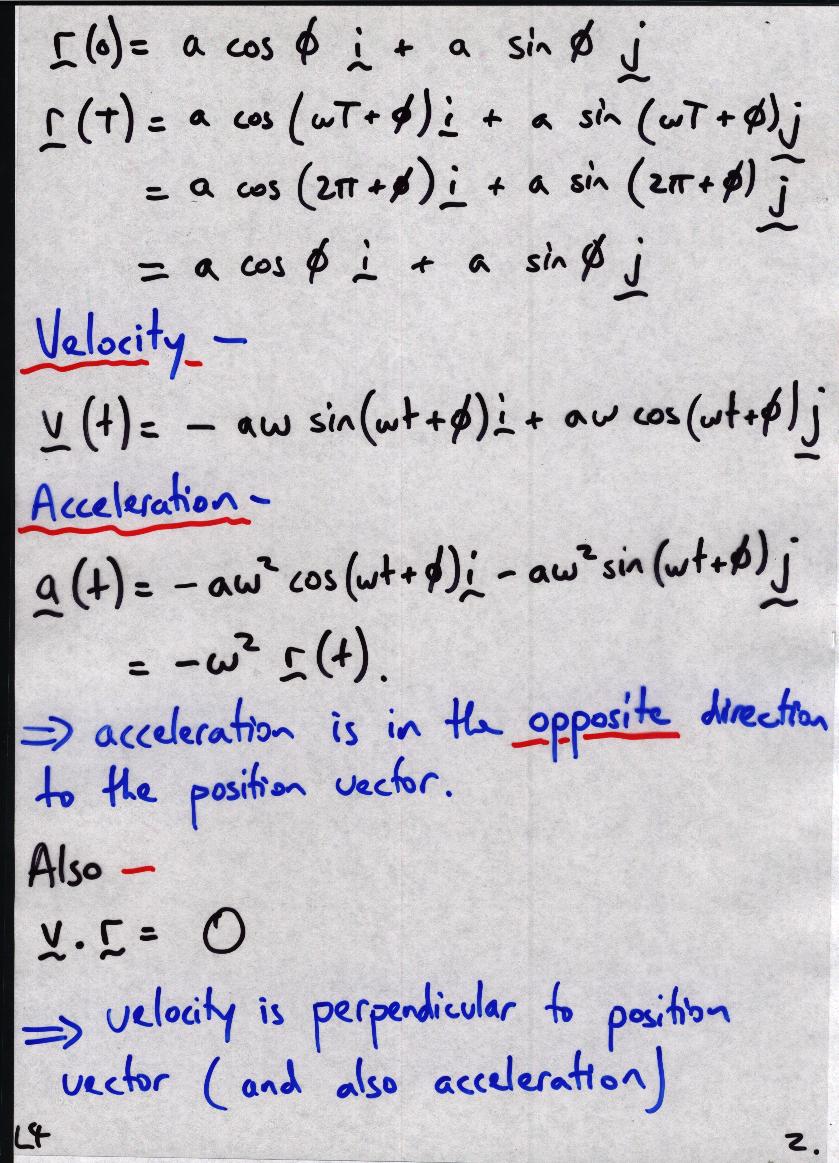 r(0) = a cos φ i + a sin φ j
r(T) = a cos(ωT + φ) i + a sin(ωT + φ) j
= a cos(2π + φ) i + a sin(2π + φ) j
= a cos φ i + a sin φ j
Velocity -
v(t) = - aω sin(ωt + φ) i + aω cos(ωt + φ) j
Acceleration -
a(t) = - aω² cos(ωt + φ) i - aω² sin(ωt + φ) j
= -ω² r(t).
⇒ acceleration is in the opposite direction
to the position vector.
Also -
v . r = 0
⇒ velocity is perpendicular to position
vector (and also acceleration)
L4 2.